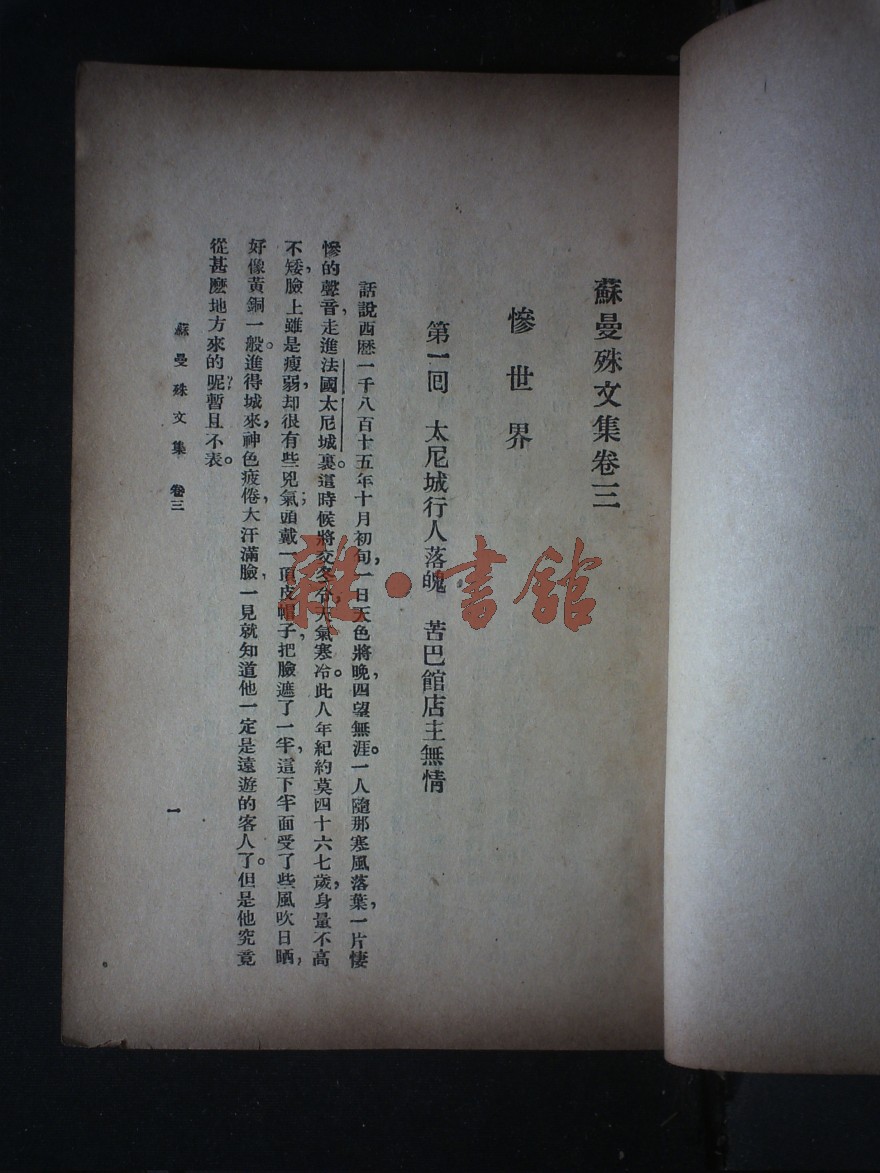 蘇曼殊文集卷三
慘世界
第一回　太尼城行人落魄　苦巴館店主無情
話說西歷一千八百十五年十月初旬，一日天色將晚，四望無涯。一人隨那寒風落葉，一片悽
慘的聲音，走進法國太尼城裏。這時候將交冬令，天氣寒冷。此人年紀約莫四十六七歲，身量不高
不矮，臉上雖是瘦弱，却很有些兇氣；頭戴一頂皮帽子，把臉遮了一半，這下半面受了些風吹日晒，
好像黃銅一般。進得城來，神色疲倦，大汗滿臉，一見就知道他一定是遠遊的客人了。但是他究竟
從甚麼地方來的呢？暫且不表。
蘇曼殊文集　卷三
一
雜·書館